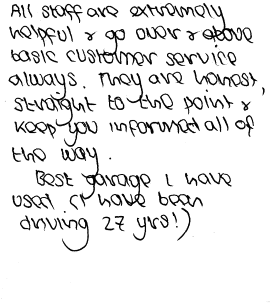 All staff are extremely
helpful & go over & above
basic customer service
always. They are honest,
straight to the point &
keep you informed all of
the way.
Best garage I have
used (I have been
driving 27 yrs!)